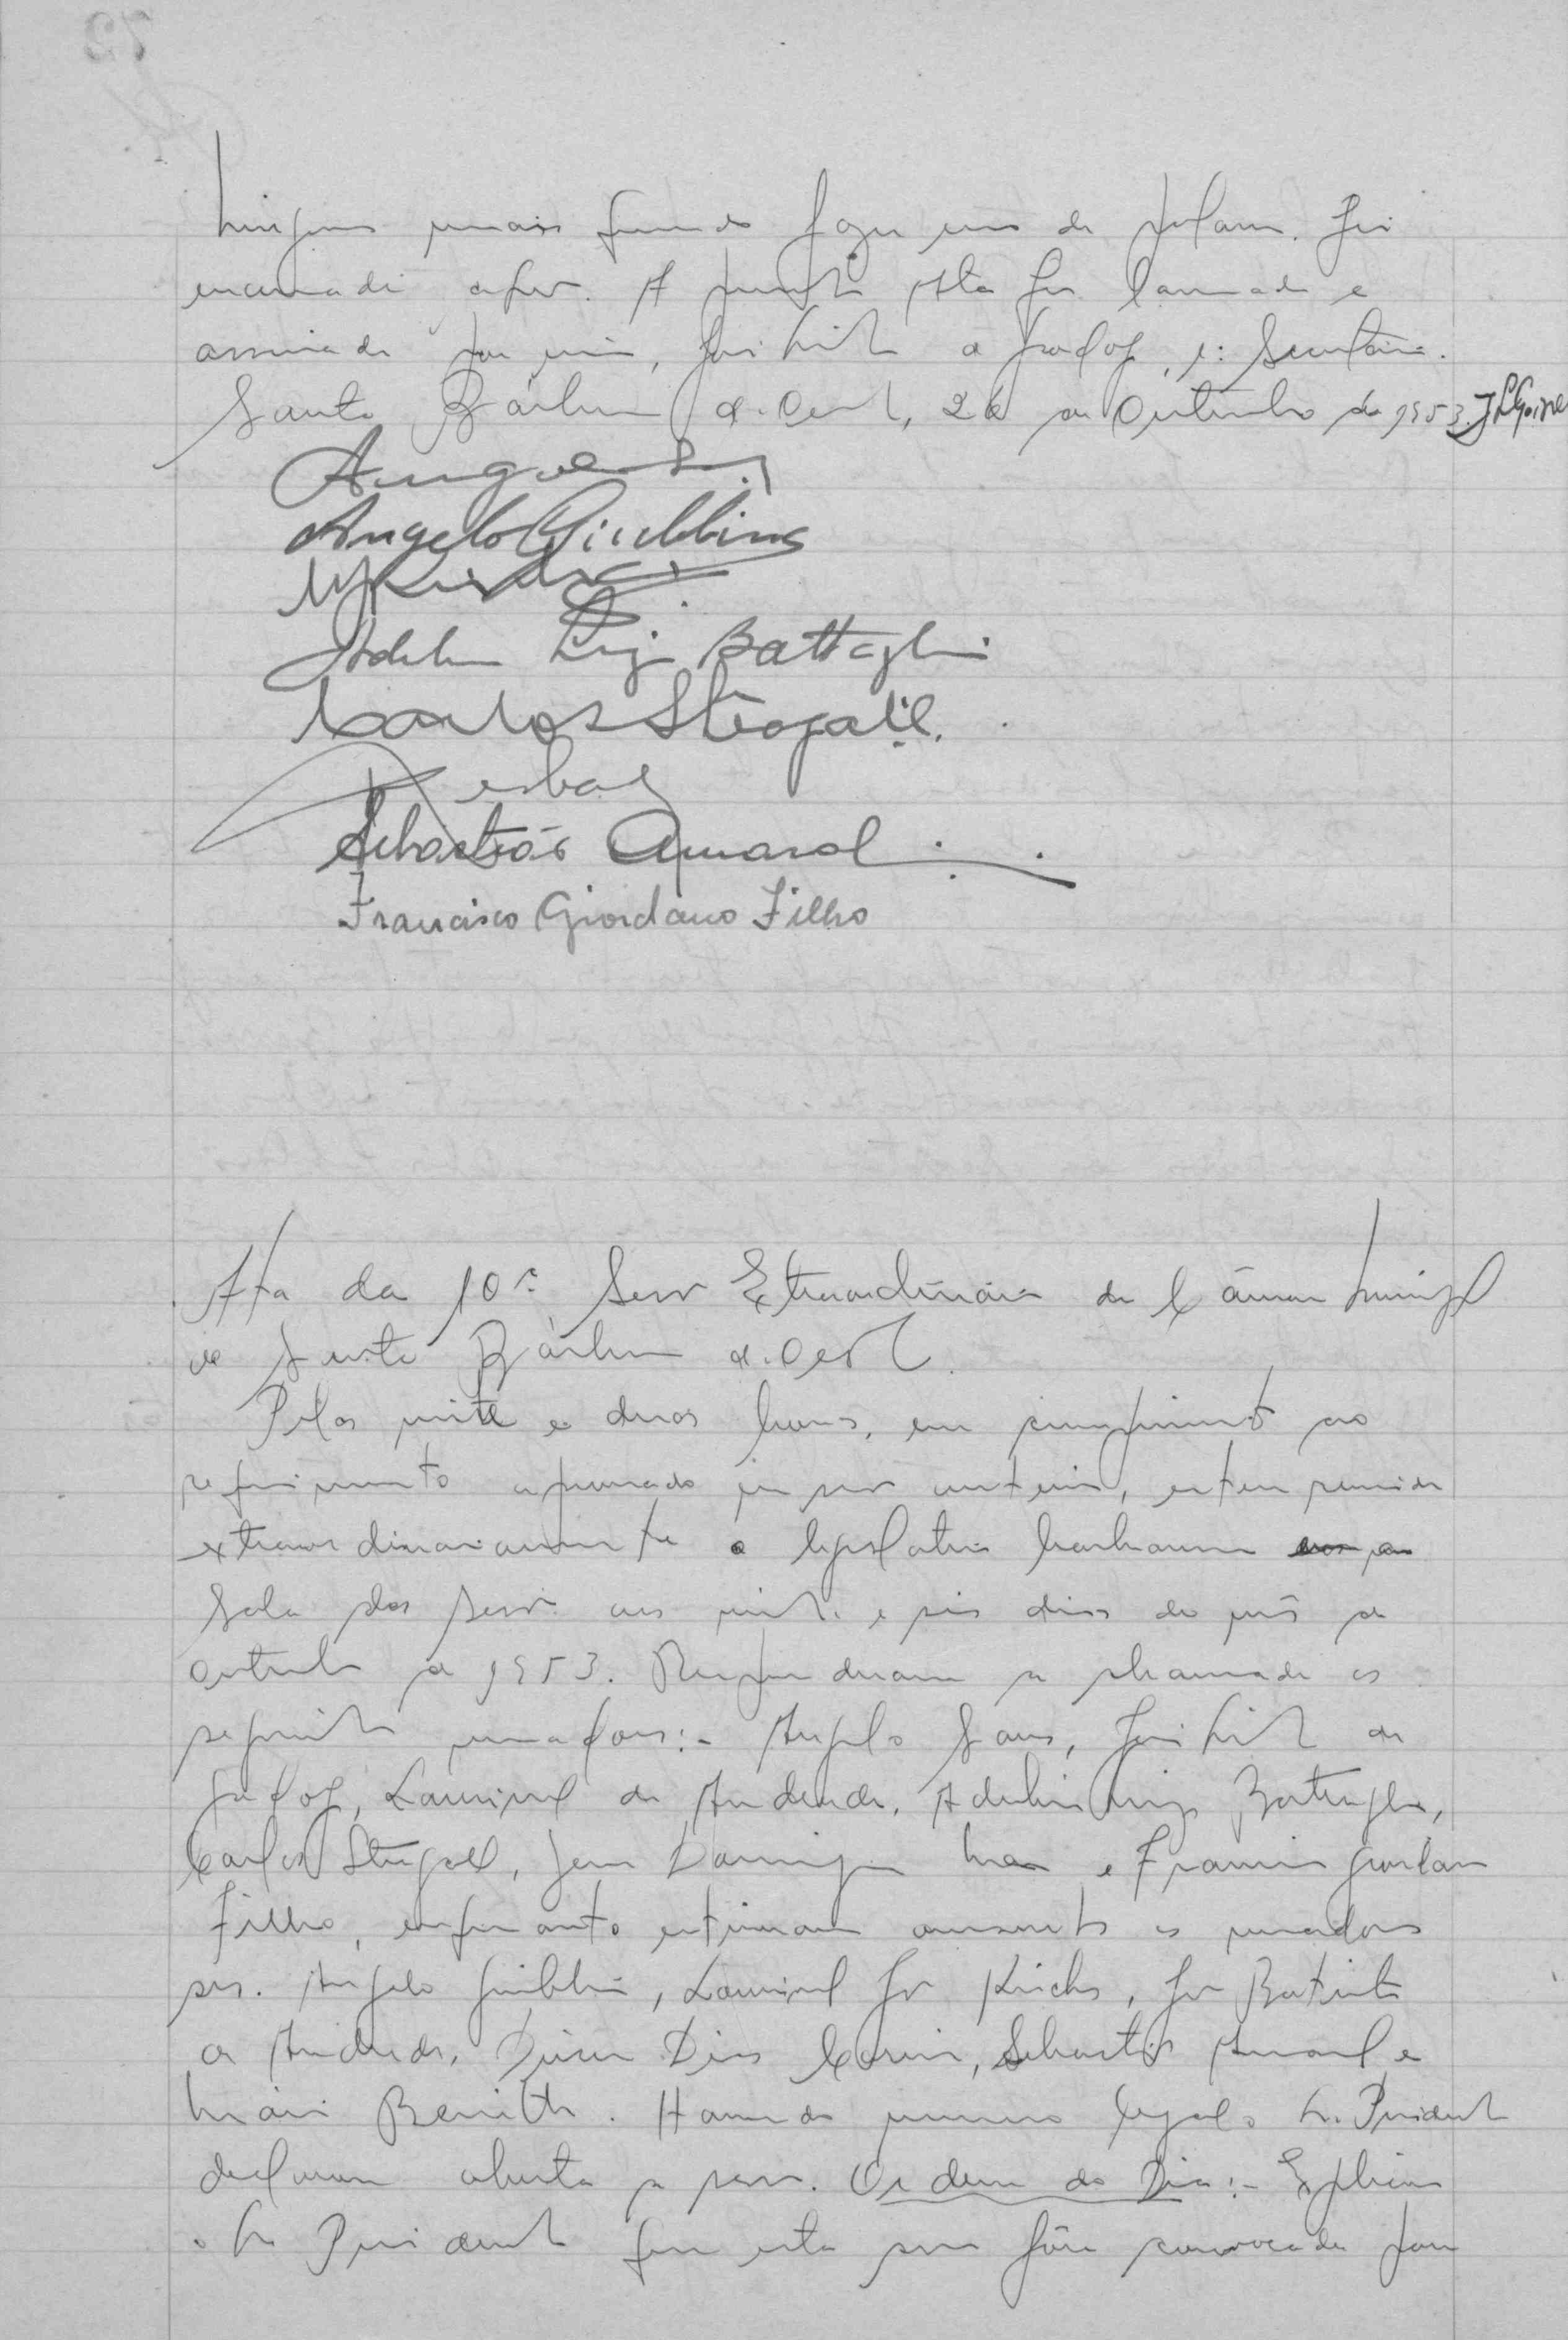 Ninguem mais querendo fazer uso da palavra, foi
encerrada a sessão. A presente Ata foi lavrada e
assinada por mim, José Leite de Godoy, 1º Secretário.
Santa Bárbara d'Oeste, 26 de Outubro de 1953.
Angelo Giubbina
Adelino Luiz Battagli
Carlos Steagall.
Sebastião Amaral
Francisco Giordano Filho
Ata da 10ª Sessão Extraordinária da Câmara Municipal
de Santa Bárbara d'Oeste.
Pelas vinte e duas horas, em cumprimento ao
requerimento aprovado em sessão anterior, esteve reunida
extraordinariamente o legislativo barbarense
Sala das Sessões aos vinte e seis dias do mês de
Outubro de 1953. Responderam a chamada os
seguintes vereadores:- Angelo Sans, José Leite de
Godoy, Lourival de Andrade, Adelino Luiz Battagli,
Carlos Steagall, Domingos e Francisco Giordano
Filho, enquanto estiveram ausentes os vereadores
srs. Angelo Giubbina, Lourival José, José Batista
de Andrade, Dirceu Dias Carneiro, Sebastião Amaral e
. Havendo numero legal o Sr. Presidente
declarou aberta a sessão. Ordem do Dia:- Explicou
o Sr. Presidente que esta sessão fôra convocada para